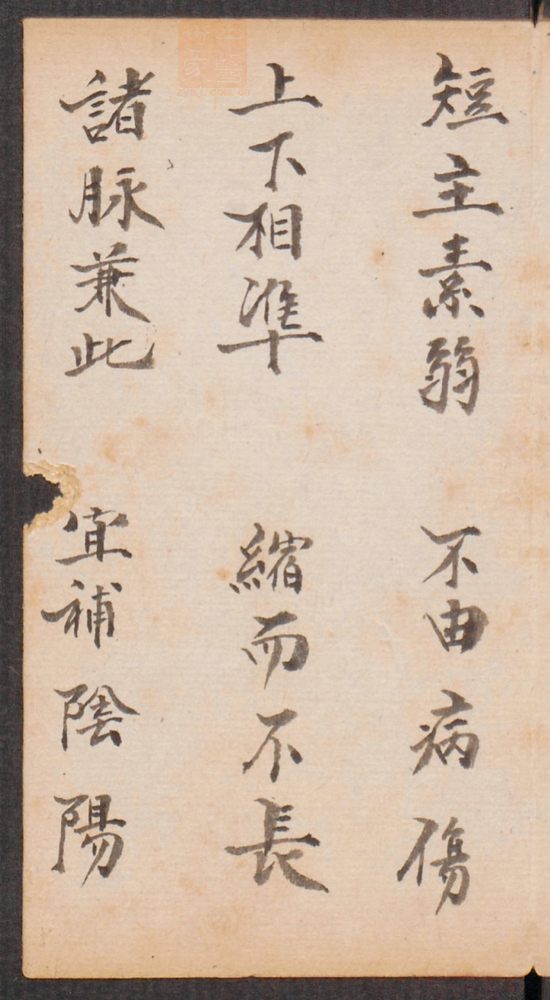 短主素弱 不由病傷
上下相準 縮而不長
諸脉兼此 宜補陰陽